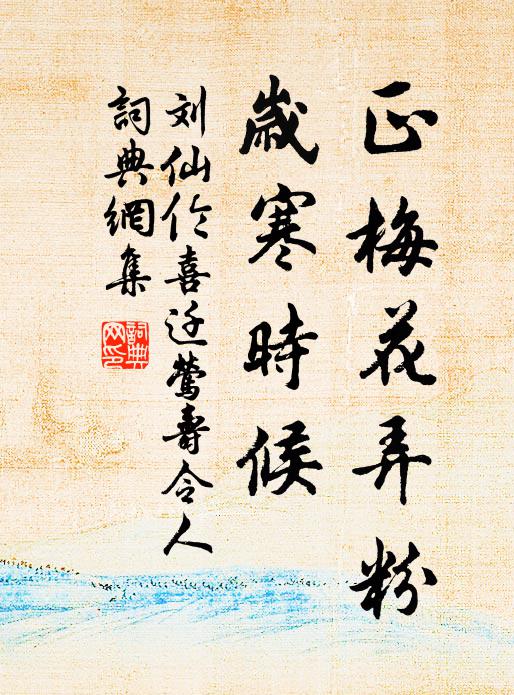 正梅花弄粉
歲寒時候
刘仙伦喜迁莺寿令人
詞典網集
詞典网印